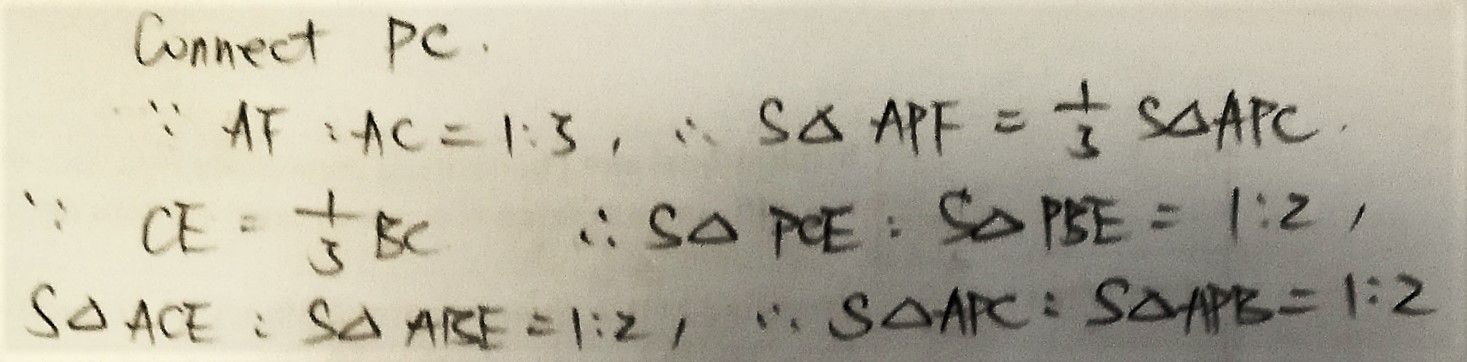 Connect PC.
∵ AF : AC = 1:3, ∴ S△ APF = 1/3 S△APC.
∵ CE = 1/3 BC ∴ S△ PCE : S△ PBE = 1:2,
S△ ACE : S△ ABE = 1:2, ∴ S△APC : S△APB = 1:2